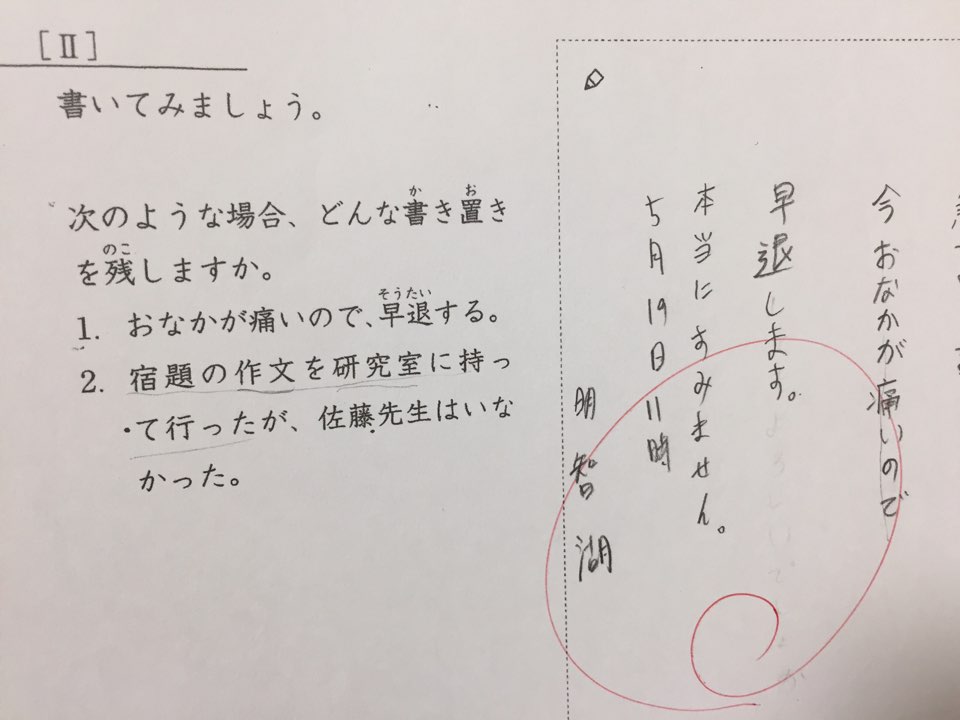 [Ⅱ]
書いてみましょう。
か お
次のような場合、どんな書き置き
のこ
を残しますか。
そうたい
1. おなかが痛いので、早退する。
2. 宿題の作文を研究室に持っ
て行ったが、佐藤先生はいな
かった。
今おなかが痛いので
早退します。
本当にすみません。
5月19日11時
明智湖